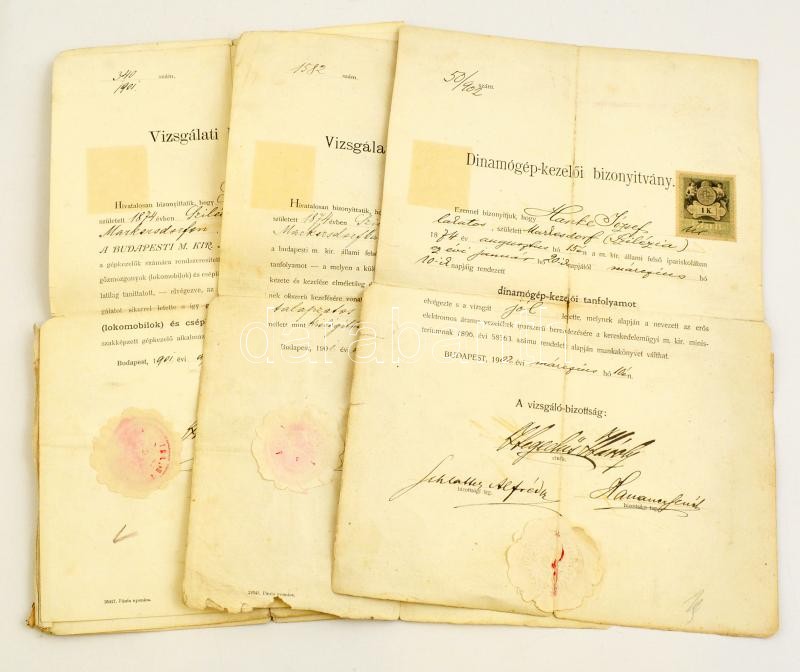 340
1901. szám.
Vizsgálati
Hivatalosan bizonyittatik, hogy
született 1874 évben
Markersdorfon
A BUDAPESTI M. KIR.
a gépkezelők számára rendszeresített
gőzmozgonyok (lokomobilok) és cséplő
latilag tanittatott, — elvégezve, az
gálatot sikerrel letette s így
(lokomobilok) és csép
szakképzett gépkezelő alkalma
Budapest, 1901 évi
38427. Pátria nyomása.
1582 szám.
Vizsgála
Hivatalosan bizonyittatik, hogy
született 1874 évben
a budapesti m. kir. állami felső
tanfolyamot — a melyen a külö
kezete és kezelése elméletileg
nek okszerű kezelésére vonat
mellett mint
Budapest, 190
Pátria nyomása.
50/902 szám.
Dinamógép-kezelői bizonyitvány.
1 K.
Ezennel bizonyitjuk, hogy Hanke József
lakatos, született Markersdorf (Szilézia)
1874 év augusztus hó 15én a m. kir. állami felső ipariskolában
évi január hó napjától márczius hó
napjáig rendezett
dinamógép-kezelői tanfolyamot
elvégezte s a vizsgát jól letette, melynek alapján a nevezett az erős
elektromos áramu vezetékek berendezésére a kereskedelemügyi m. kir. minis-
teriumnak 1896. évi 58163. számu rendelete alapján munkakönyvet válthat.
BUDAPEST, 1902 évi márczius hó 10én.
A vizsgáló-bizottság:
Hegedüs Károly
elnök.
Schlattner Alfréd
bizottsági tag.
bizottsági tag.
darabanth